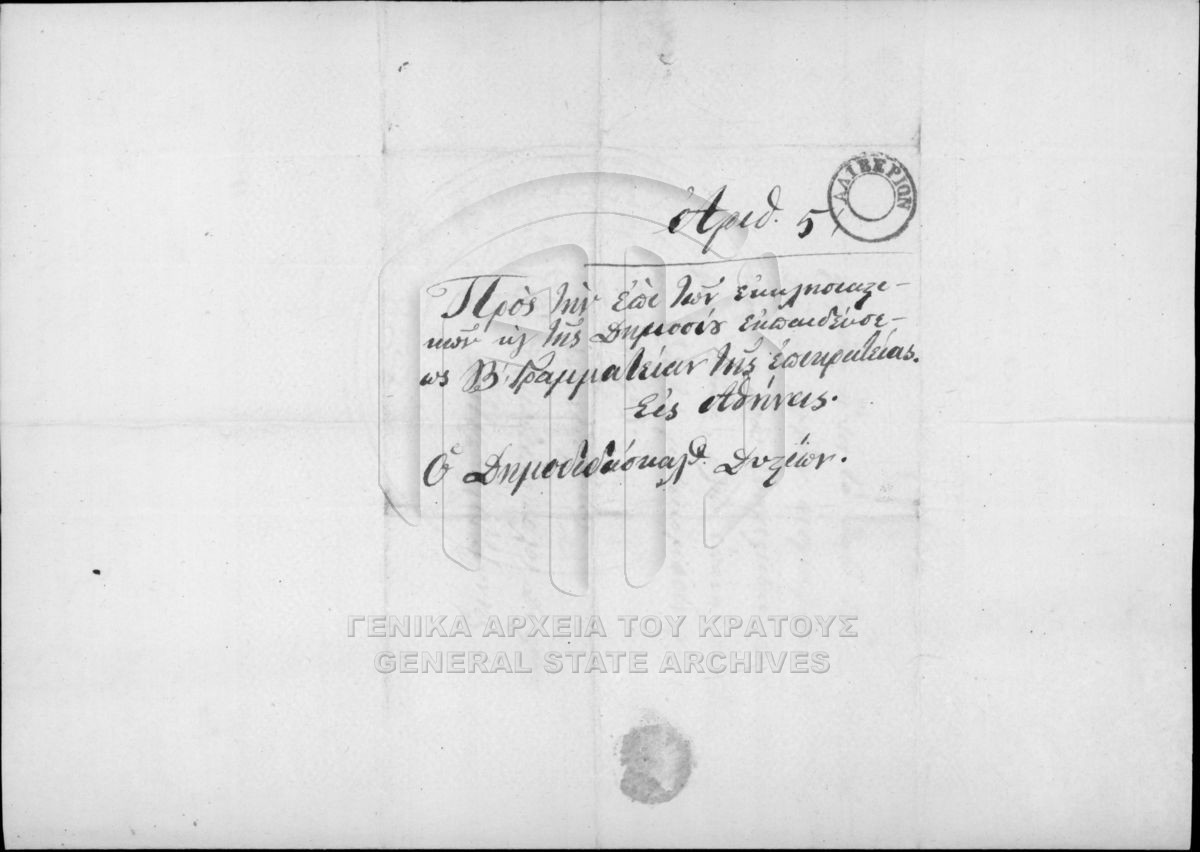 ΑΛΙΒΕΡΙΟΝ
Ἀριθ. 5
Πρὸς τὴν ἐπὶ τῶν ἐκκλησιαστι-
κῶν κ τῆς Δημοσίου ἐκπαιδεύσε-
ως Β. Γραμματείαν τῆς ἐπικρατείας.
Εἰς Ἀθήνας.
Ὁ Δημοδιδάσκαλος Δυστίων.
ΓΕΝΙΚΑ ΑΡΧΕΙΑ ΤΟΥ ΚΡΑΤΟΥΣ
GENERAL STATE ARCHIVES